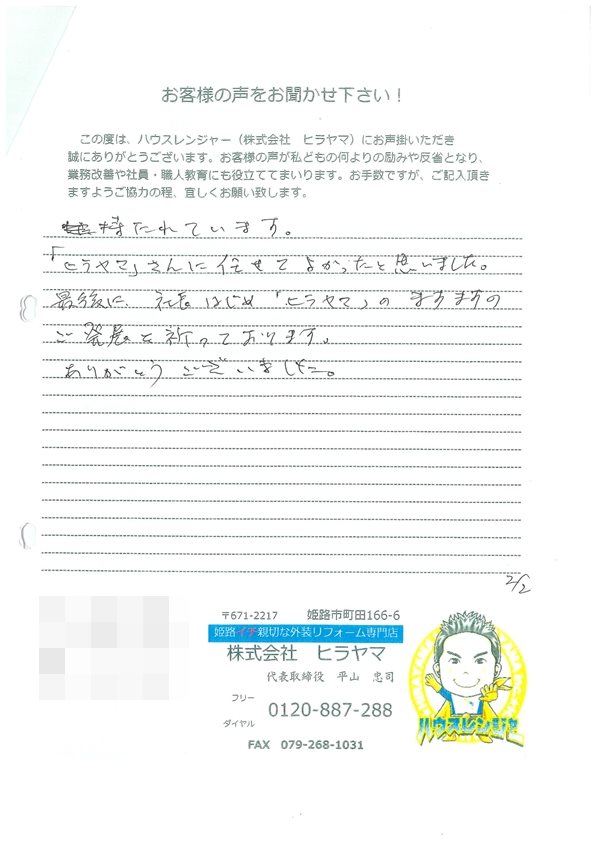 お客様の声をお聞かせ下さい！
この度は、ハウスレンジャー（株式会社　ヒラヤマ）にお声掛いただき
誠にありがとうございます。お客様の声が私どもの何よりの励みや反省となり、
業務改善や社員・職人教育にも役立ててまいります。お手数ですが、ご記入頂き
ますようご協力の程、宜しくお願い致します。
持たれています。
「ヒラヤマ」さんに任せてよかったと思いました。
最後に、社長はじめ「ヒラヤマ」のますますの
ご発展を祈っております。
ありがとうございました。
2/2
〒671-2217　姫路市町田166-6
姫路イチ親切な外装リフォーム専門店
株式会社　ヒラヤマ
代表取締役　平山　忠司
フリーダイヤル　0120-887-288
FAX　079-268-1031
ハウスレンジャー